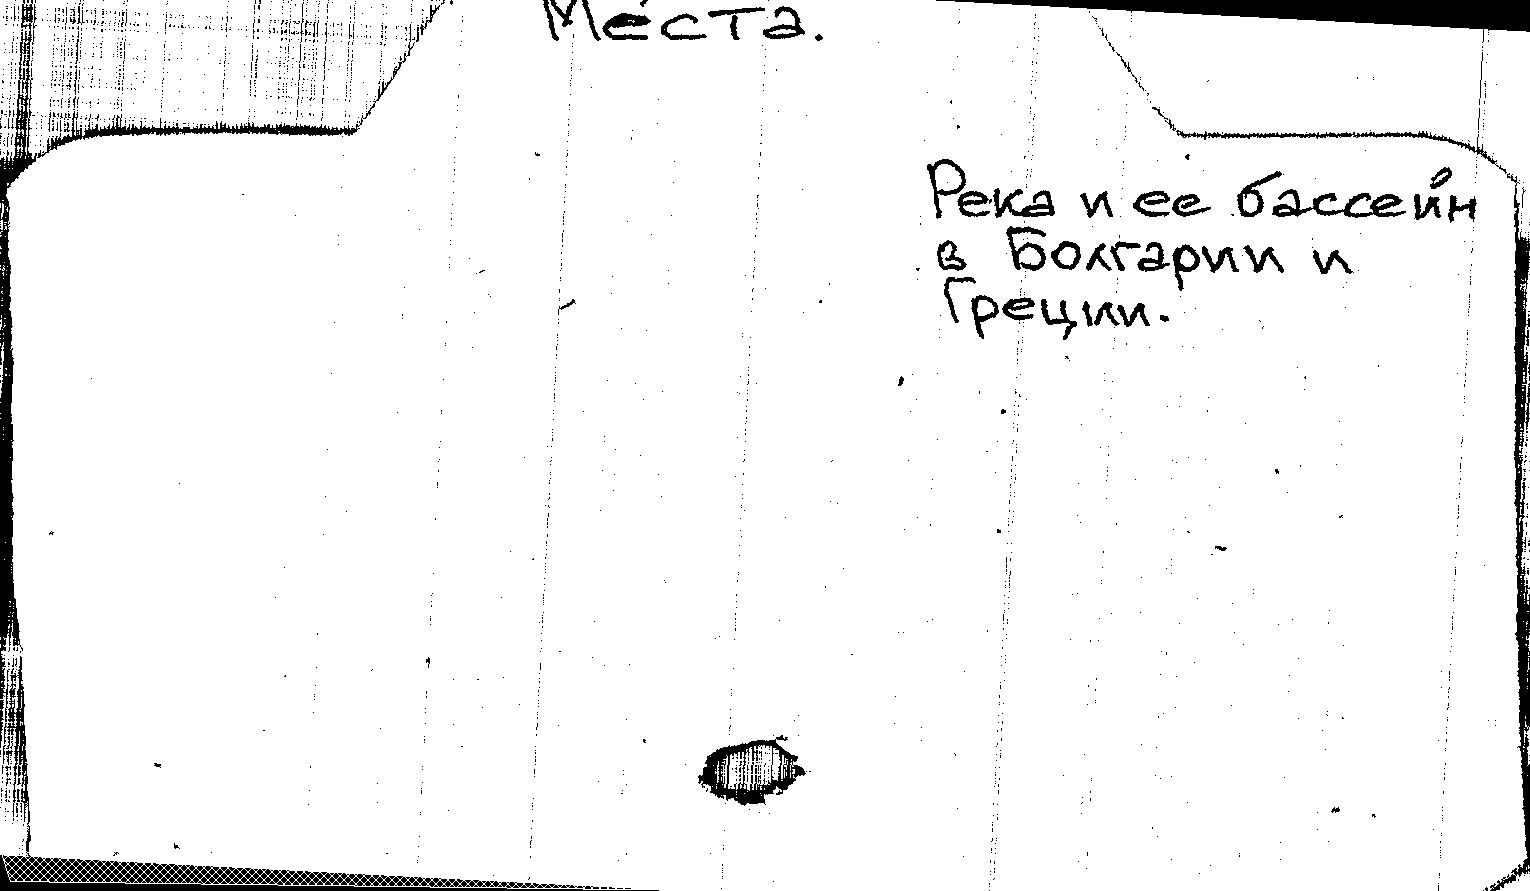 Ме́ста.
Река и ее бассейн
в Болгарии и
Греции.